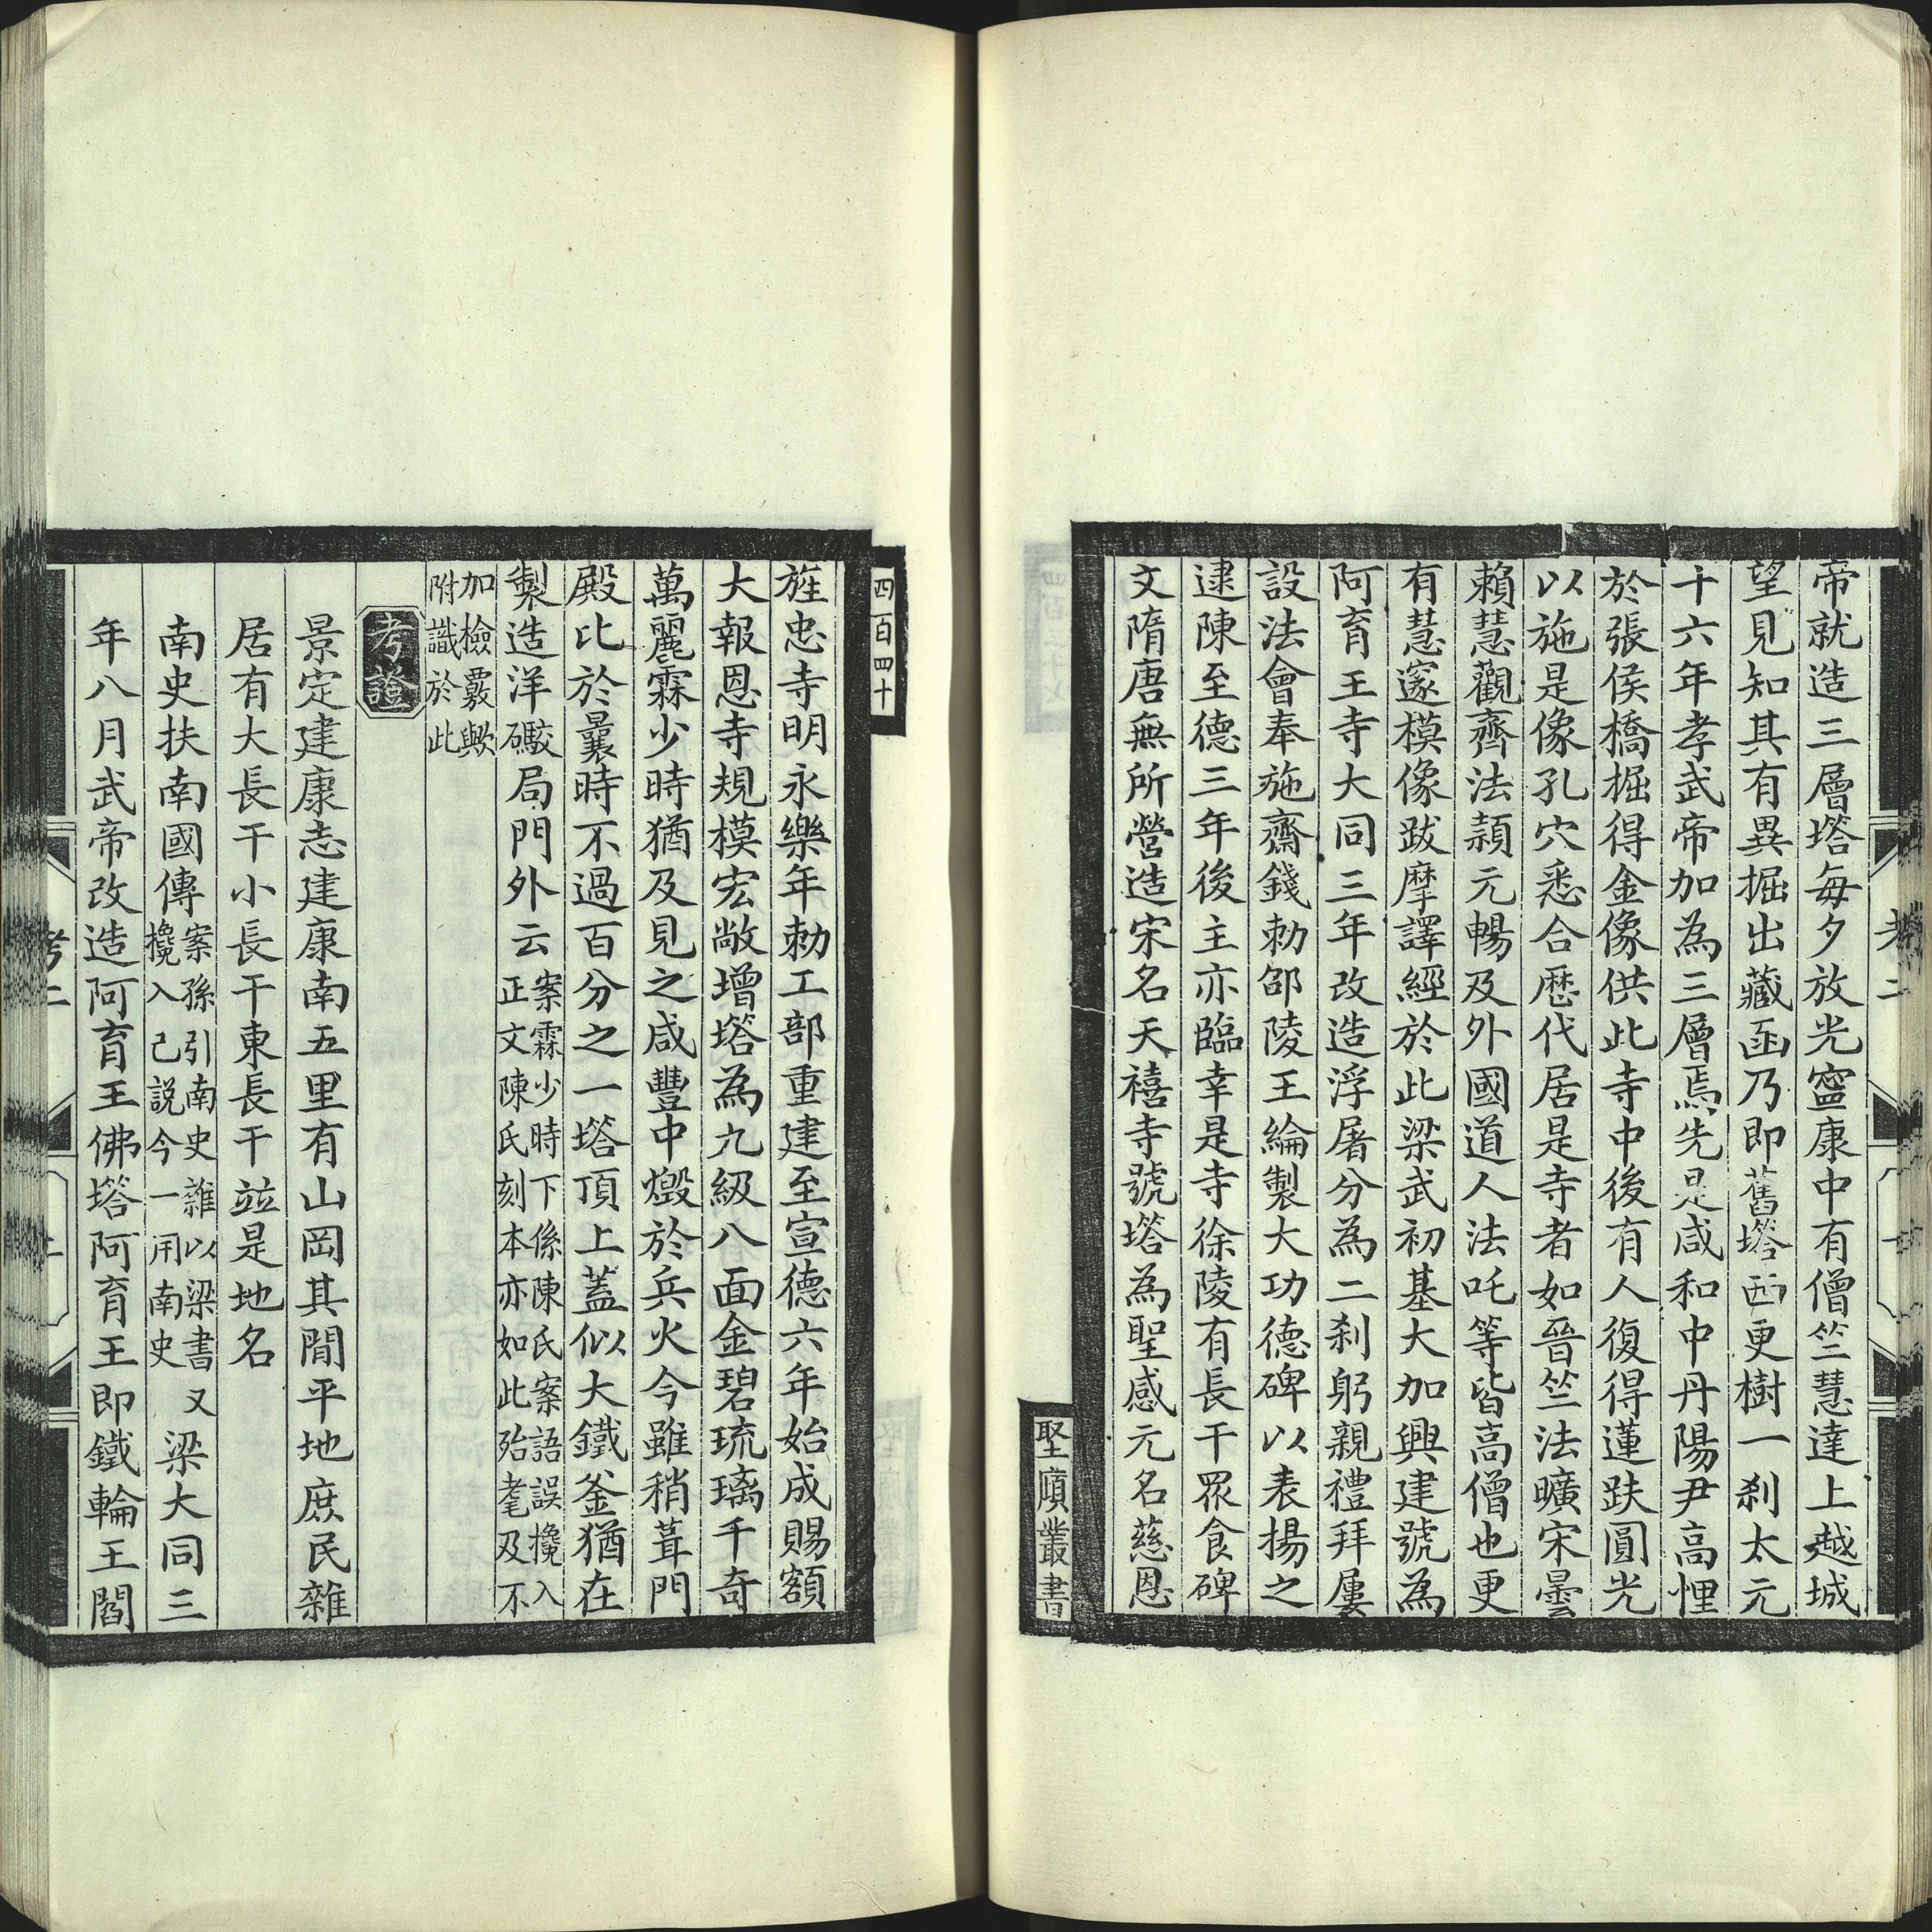 帝就造三層塔每夕放光寧康中有僧竺慧達上越城
望見知其有異掘出藏函乃即舊塔西更樹一刹太元
十六年孝武帝加為三層焉先是咸和中丹陽尹高悝
於張侯橋掘得金像供此寺中後有人復得蓮趺圓光
以施是像孔穴悉合歷代居是寺者如晉竺法曠宋曇
賴慧觀齊法潁元暢及外國道人法吒等皆高僧也更
有慧邃模像跋摩譯經於此梁武初基大加興建號為
阿育王寺大同三年改造浮屠分為二刹躬親禮拜屢
設法會奉施齋錢勅邵陵王綸製大功德碑以表揚之
逮陳至德三年後主亦臨幸是寺徐陵有長干眾食碑
文隋唐無所營造宋名天禧寺號塔為聖感元名慈恩
堅瓠叢書
四百四十
旌忠寺明永樂年勅工部重建至宣德六年始成賜額
大報恩寺規模宏敞增塔為九級八面金碧琉璃千奇
萬麗霖少時猶及見之咸豐中燬於兵火今雖稍葺門
殿比於曩時不過百分之一塔頂上蓋似大鐵釜猶在
製造洋礮局門外云案霖少時下係陳氏案語誤攙入
正文陳氏刻本亦如此殆耄及不
加檢覈歟
附識於此
考證
景定建康志建康南五里有山岡其間平地庶民雜
居有大長干小長干東長干竝是地名
南史扶南國傳案孫引南史雜以梁書又
攙入己說今一用南史梁大同三
年八月武帝改造阿育王佛塔阿育王即鐵輪王閻
考二